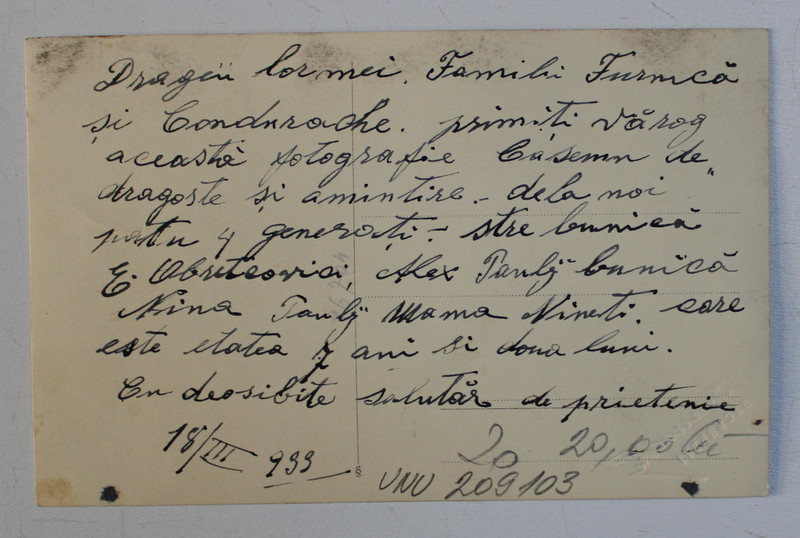 Dragii lor mei. Familii Furnică
și Condurache. primiți vă rog
această fotografie Ca semn de
dragoste și amintire - dela noi "
patru 4 generați - stre bunică
E. Obuticovici, Alex Pauly bunică
Nina Pauly Mama Nineti. care
este etatea 7 ani si doua luni.
Cu deosibite salutăr de prietenie
18/III 933
20 20,00 lei
VNU 209103